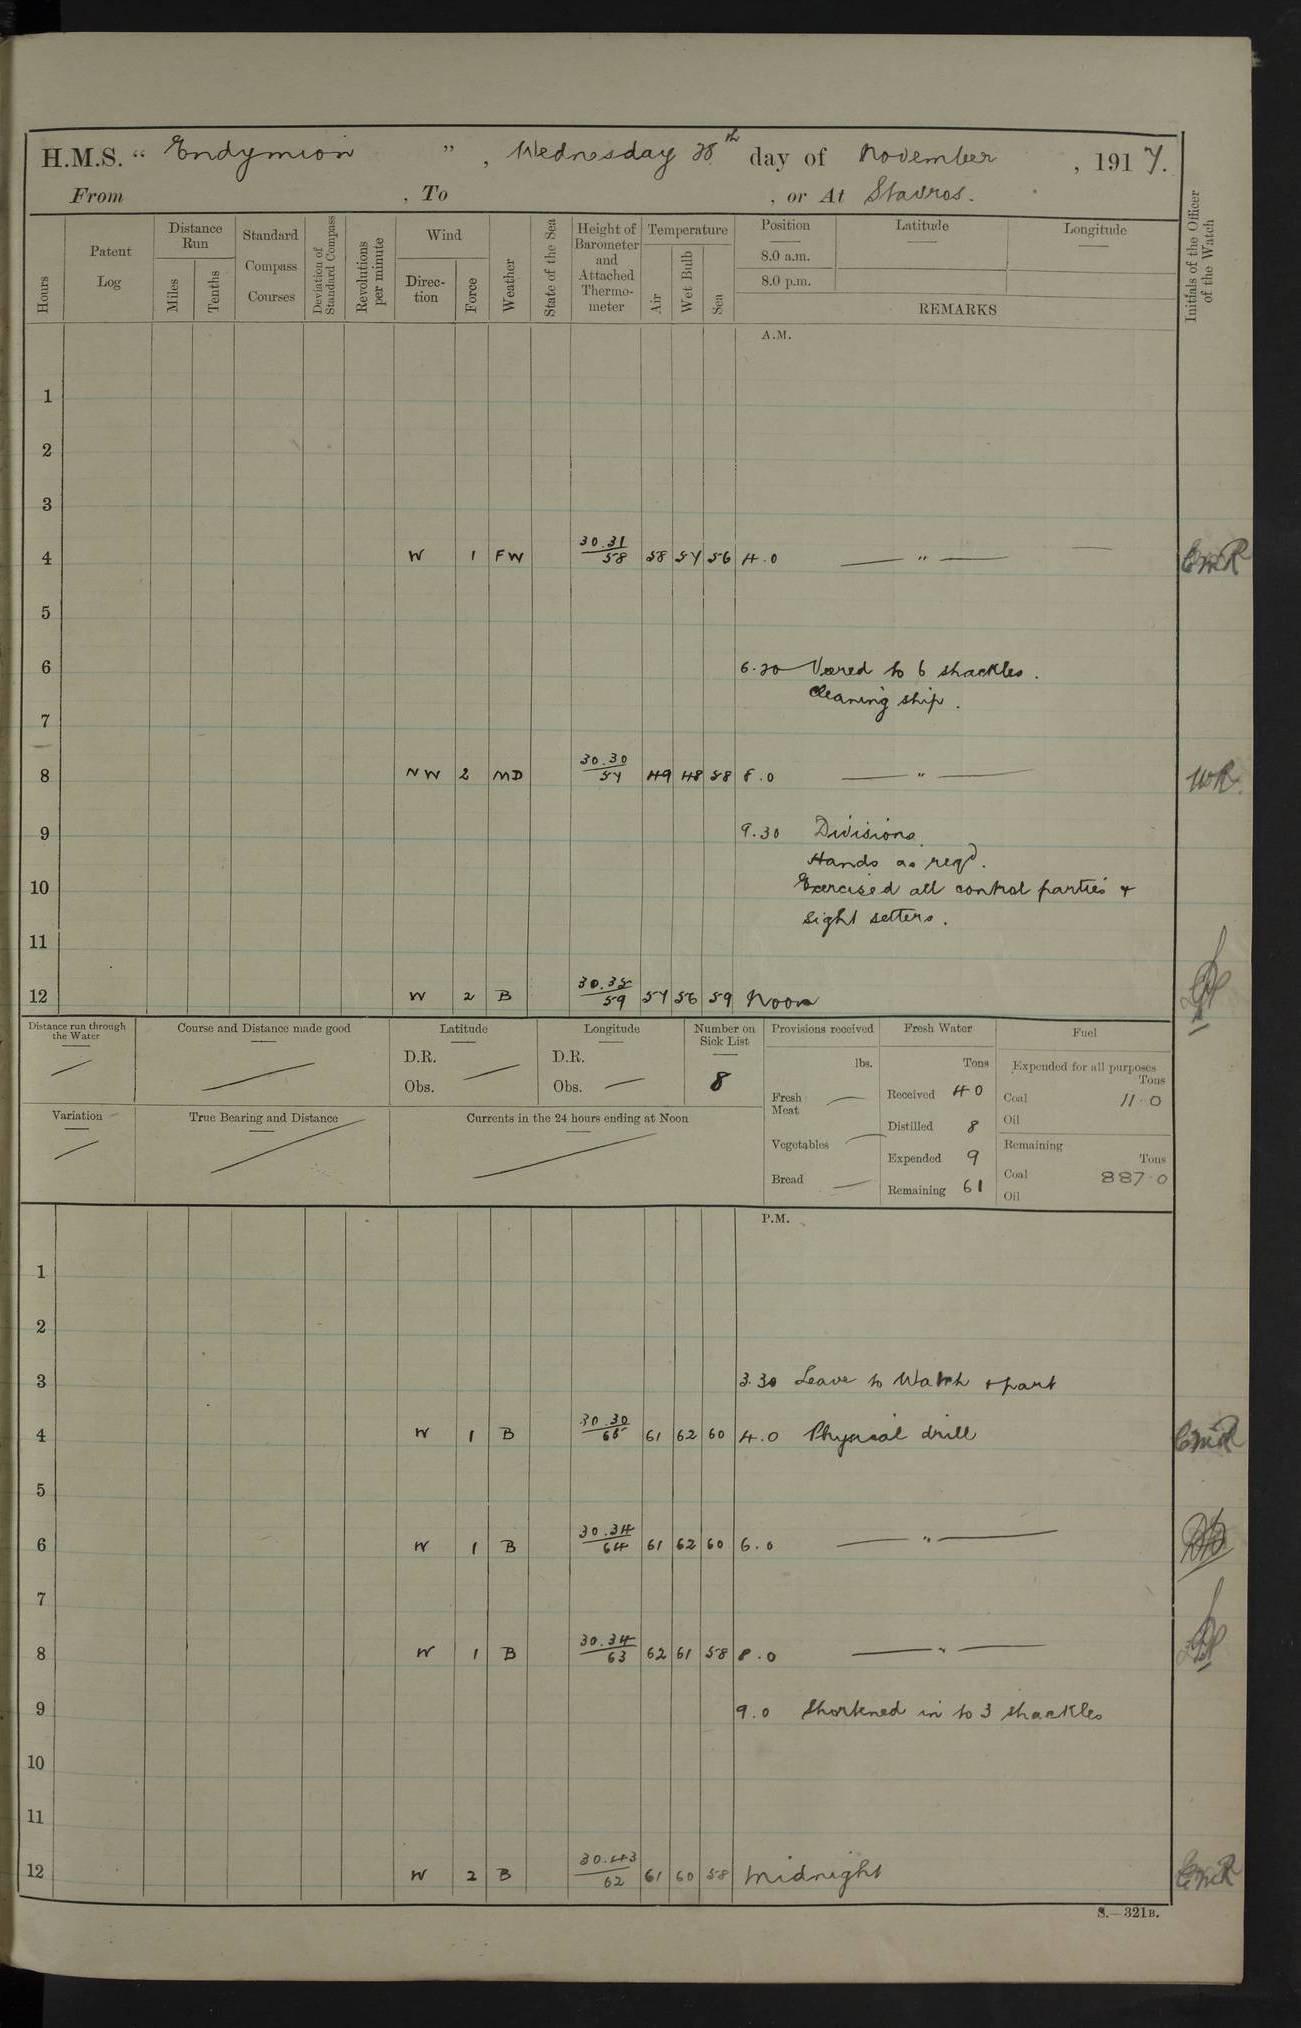 H.M.S. " Endymion ", Wednesday 28th day of November, 1917.
From , To , or At Stavros.
Hours
Patent Log
Distance Run
Miles
Tenths
Standard Compass Courses
Deviation of Standard Compass
Revolutions per minute
Wind
Direction
Force
Weather
State of the Sea
Height of Barometer and Attached Thermometer
Temperature
Air
Wet Bulb
Sea
Position
8.0 a.m.
8.0 p.m.
Latitude
Longitude
REMARKS
Initials of the Officer of the Watch
A.M.
1
2
3
4 W 1 FW 30.31 58 58 57 56 4.0 — " —
5
6 6.20 Veered to 6 shackles.
Cleaning ship.
7
8 NW 2 MD 30.30 57 49 48 58 8.0 — " —
9 9.30 Divisions.
Hands as reqd.
10 Exercised all control parties +
sight setters.
11
12 W 2 B 30.35 59 57 56 59 Noon
Distance run through the Water
Course and Distance made good
Latitude
D.R.
Obs.
Longitude
D.R.
Obs.
Number on Sick List
8
Provisions received
lbs.
Fresh Meat
Vegetables
Bread
Fresh Water
Tons
Received 40
Distilled 8
Expended 9
Remaining 61
Fuel
Expended for all purposes
Tons
Coal 11.0
Oil
Remaining
Tons
Coal 887.0
Oil
Variation
True Bearing and Distance
Currents in the 24 hours ending at Noon
P.M.
1
2
3 3.30 Leave to Watch + part
4 W 1 B 30.30 65 61 62 60 4.0 Physical drill
5
6 W 1 B 30.34 64 61 62 60 6.0 — " —
7
8 W 1 B 30.34 63 62 61 58 8.0 — " —
9 9.0 Shortened in to 3 shackles
10
11
12 W 2 B 30.43 62 61 60 58 Midnight
S.—321B.